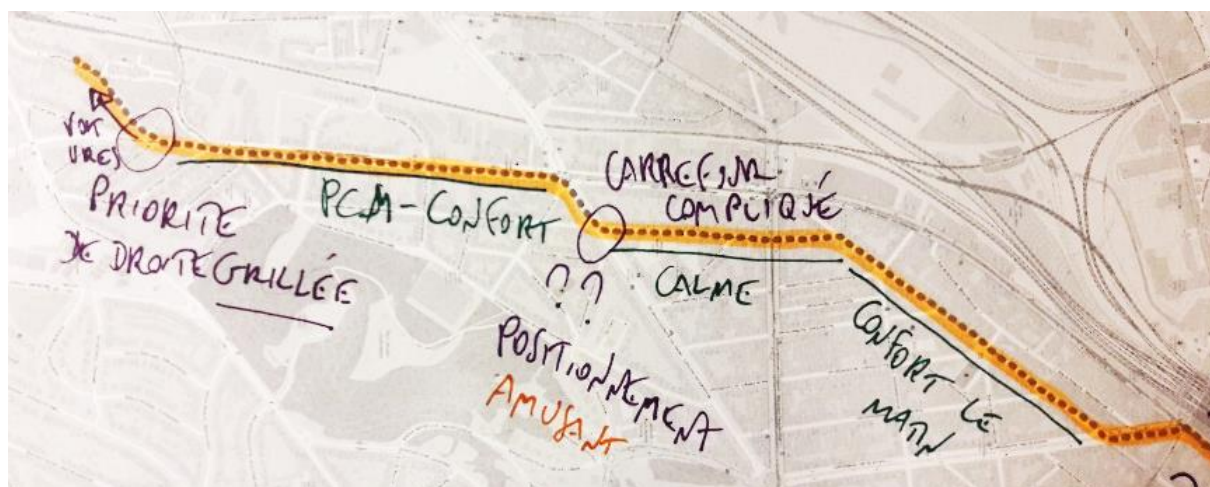 VOIT
URES
PRIORITE
DE DROITE GRILLÉE
PCM-CONFORT
CARREFOUR
COMPLIQUÉ
CALME
??
POSITIONNEMENT
AMUSANT
CONFORT LE
MATIN
?